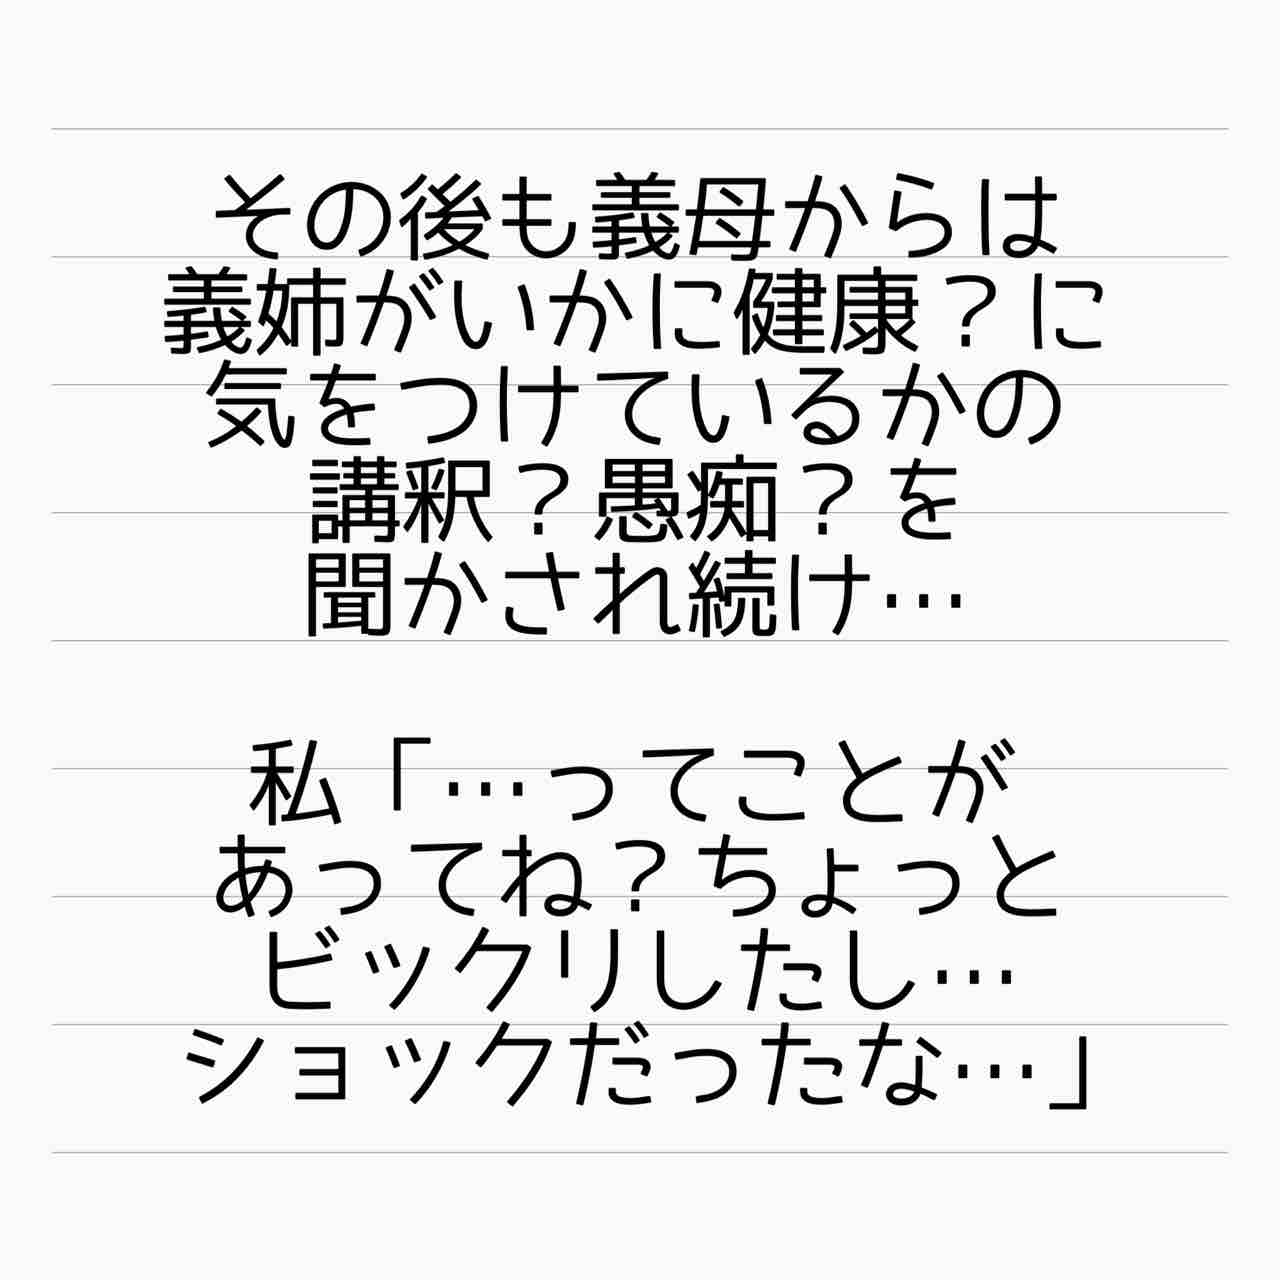 その後も義母からは
義姉がいかに健康？に
気をつけているかの
講釈？愚痴？を
聞かされ続け…
私「…ってことが
あってね？ちょっと
ビックリしたし…
ショックだったな…」